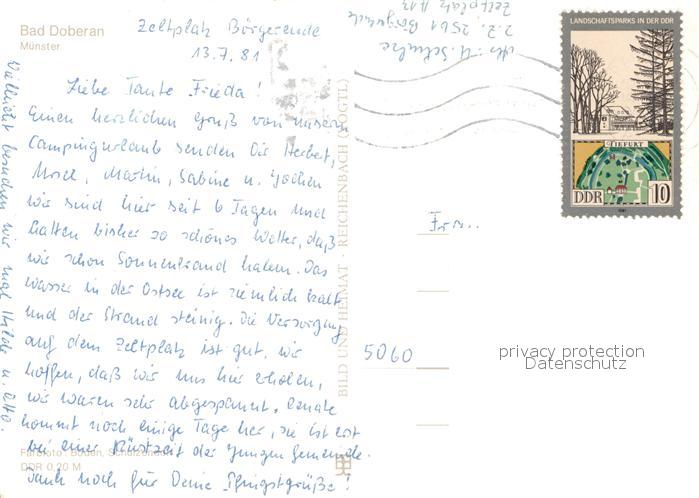 Bad Doberan
Münster
Zeltplatz Börgerende
13.7.81
Liebe Tante Frieda!
Einen herzlichen Gruß von unserem
Campingurlaub senden Dir Herbert,
Martin, Sabine u. Jochen
Wir sind hier seit 6 Tagen und
hatten bisher so schönes Wetter, daß
wir schon Sonnenbrand haben. Das
Wasser in der Ostsee ist ziemlich kalt
und der Strand steinig. Die Versorgung
auf dem Zeltplatz ist gut. Wir
hoffen, daß wir uns hier erholen,
wir waren sehr abgespannt. Renate
kommt noch einige Tage her, sie ist erst
bei einer Rüstzeit der Jungen Gemeinde.
Dank noch für Deine Pfingstgrüße!
Vielleicht besuchen wir mal Hilde u. Otto.
Abs. H. Schulze
z.Z. 2561 Börgerende
Zeltplatz
LANDSCHAFTSPARKS IN DER DDR
TIEFURT
DDR 10
1981
Frau
5060
privacy protection
Datenschutz
BILD UND HEIMAT · REICHENBACH (VOGTL)
Farbfoto: Boden,
DDR 0,20 M